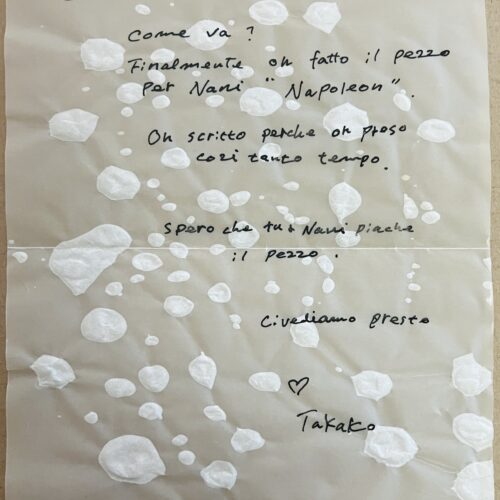 Come va ?
Finalmente oh fatto il pezzo
per Nani " Napoleon ".
Oh scritto perche oh preso
cozi tanto tempo.
spero che tu & Nani piache
il pezzo .
Civediamo presto
♡
Takako